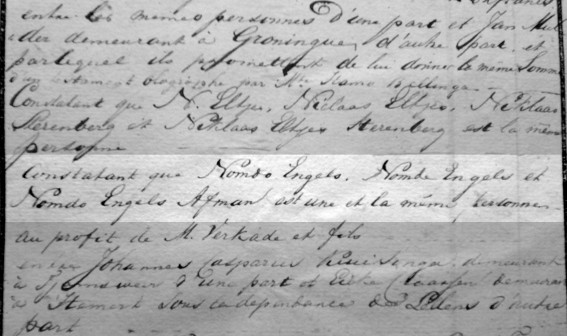 entre les mêmes personnes d'une part et Jan Mul
der demeurant à Groningue, d'autre part et
par lequel ils promettent de lui donner la même somme
d'un testament olographe par
Constatant que N. Eltjes, Niclaas Eltjes, Niklaas
Sterenberg et Niklaas Eltjes Sterenberg est la même
personne
Constatant que Nomdo Engels, Nombe Engels et
Nomdo Engels Afman est une et la même personne
au profit de M. Verkade et fils
entre Johannes Casparus demeurant
à d'une part et Eilke Claassen demeurant
à 't Stement sous la dépendance de d'autre
part